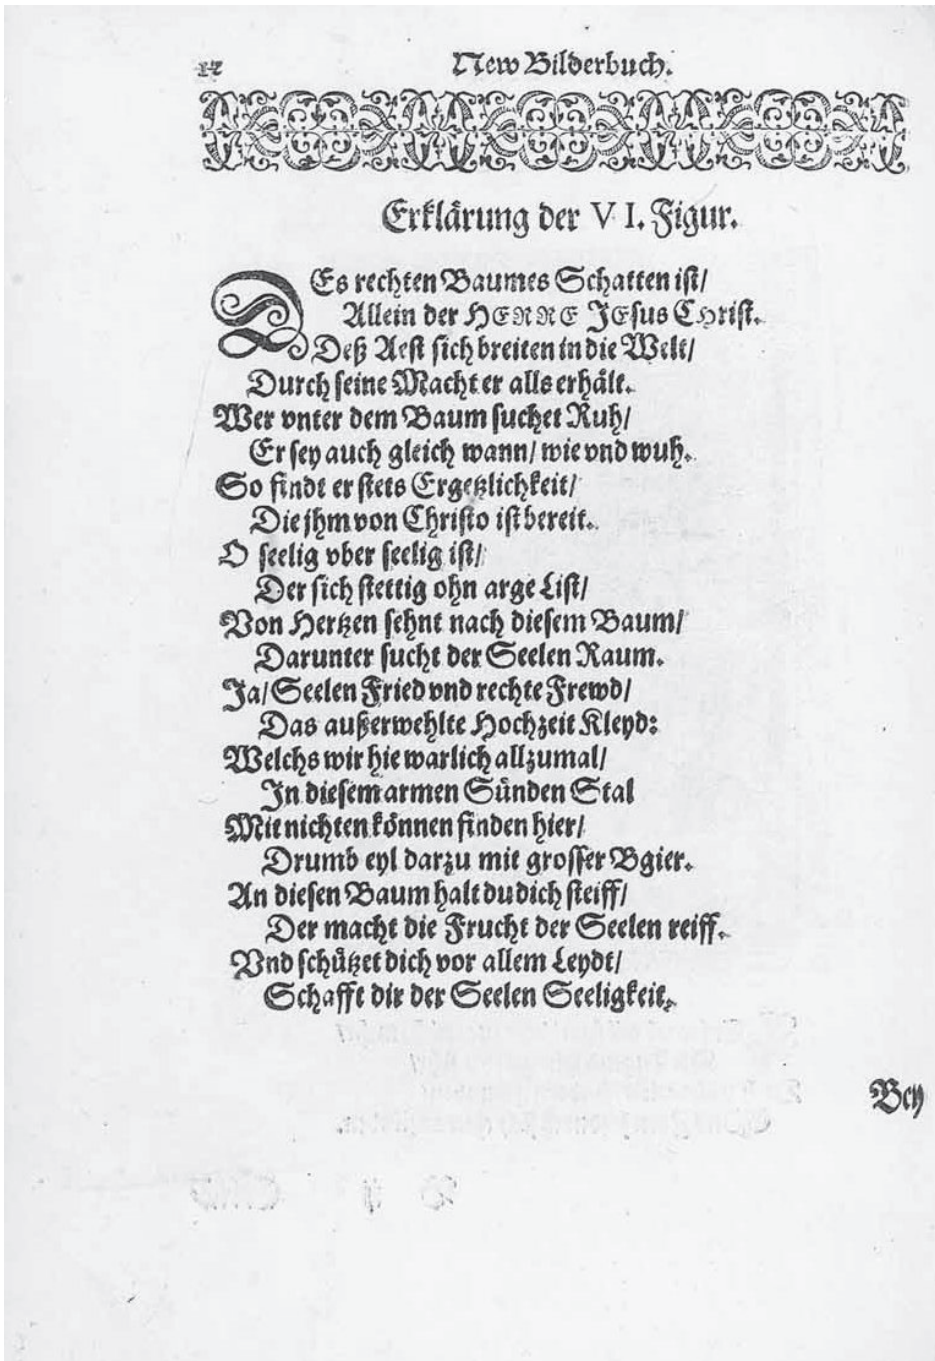 12 New Bilderbuch.
Erklärung der VI. Figur.
DEs rechten Baumes Schatten ist/
Allein der HERRE JEsus CHrist.
Deß Aest sich breiten in die Welt/
Durch seine Macht er alls erhält.
Wer vnter dem Baum suchet Ruh/
Er sey auch gleich wann/ wie vnd wuh.
So findt er stets Ergetzlichkeit/
Die jhm von Christo ist bereit.
O seelig vber seelig ist/
Der sich stettig ohn arge List/
Von Hertzen sehnt nach diesem Baum/
Darunter sucht der Seelen Raum.
Ja/ Seelen Fried vnd rechte Frewd/
Das außerwehlte Hochzeit Kleyd:
Welchs wir hie warlich allzumal/
In diesem armen Sünden Stal
Mit nichten können finden hier/
Drumb eyl darzu mit grosser Bgier.
An diesen Baum halt du dich steiff/
Der macht die Frucht der Seelen reiff.
Vnd schützet dich vor allem Leydt/
Schafft dir der Seelen Seeligkeit.
Bey